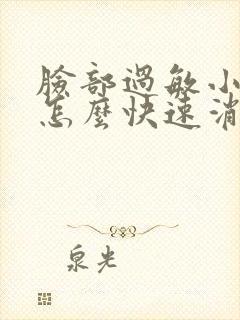 臉部過敏小
怎麼快速消
泉光